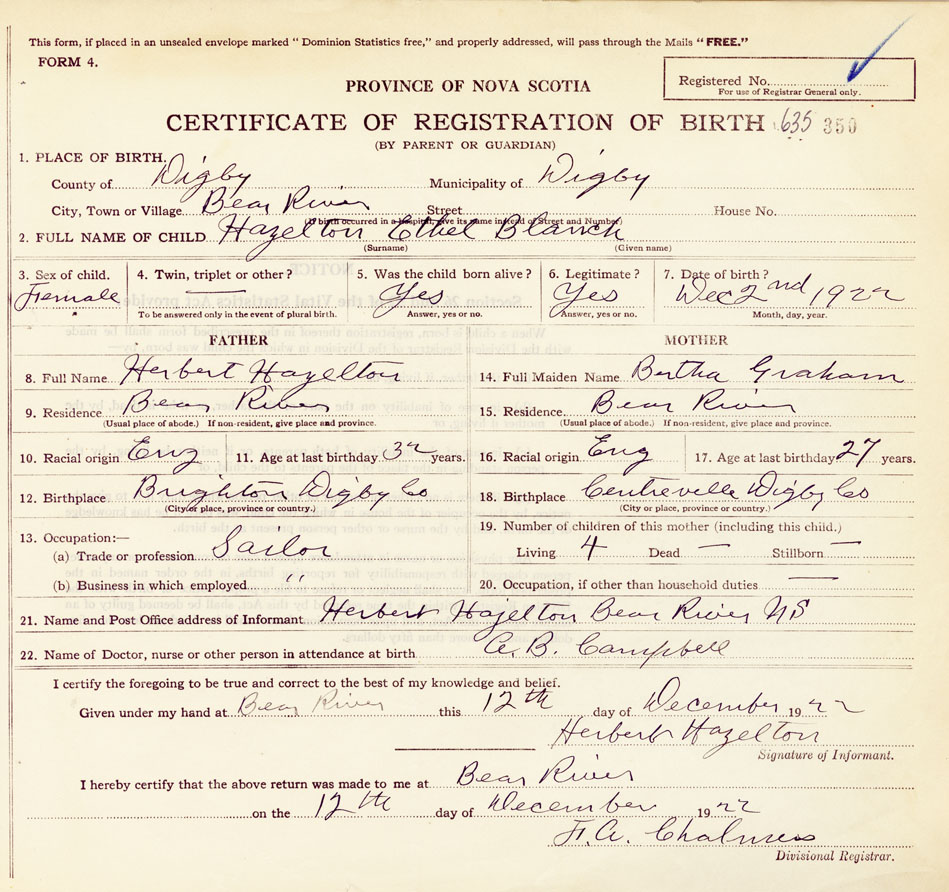 This form, if placed in an unsealed envelope marked "Dominion Statistics free," and properly addressed, will pass through the Mails "FREE."
FORM 4.
Registered No.
For use of Registrar General only.
PROVINCE OF NOVA SCOTIA
CERTIFICATE OF REGISTRATION OF BIRTH 635 350
(BY PARENT OR GUARDIAN)
1. PLACE OF BIRTH.
County of Digby Municipality of Digby
City, Town or Village Bear River Street House No.
(If birth occurred in a hospital, give its name instead of Street and Number)
2. FULL NAME OF CHILD Hazelton Ethel Blanch
(Surname) (Given name)
3. Sex of child. 4. Twin, triplet or other? 5. Was the child born alive? 6. Legitimate? 7. Date of birth?
Female — Yes Yes Dec 2nd 1922
To be answered only in the event of plural birth. Answer, yes or no. Answer, yes or no. Month, day, year.
FATHER MOTHER
8. Full Name Herbert Hazelton 14. Full Maiden Name Bertha Graham
9. Residence Bear River 15. Residence. Bear River
(Usual place of abode.) If non-resident, give place and province. (Usual place of abode.) If non-resident, give place and province.
10. Racial origin Eng 11. Age at last birthday 32 years. 16. Racial origin Eng 17. Age at last birthday 27 years.
12. Birthplace Brighton Digby Co 18. Birthplace Centreville Digby Co
(City or place, province or country.) (City or place, province or country.)
19. Number of children of this mother (including this child.)
13. Occupation:—
(a) Trade or profession Sailor Living 4 Dead — Stillborn —
(b) Business in which employed " 20. Occupation, if other than household duties —
21. Name and Post Office address of Informant Herbert Hazelton Bear River NS
22. Name of Doctor, nurse or other person in attendance at birth A. B. Campbell
I certify the foregoing to be true and correct to the best of my knowledge and belief.
Given under my hand at Bear River this 12th day of December 1922
Herbert Hazelton
Signature of Informant.
I hereby certify that the above return was made to me at Bear River
on the 12th day of December 1922
F. A. Chalmers
Divisional Registrar.